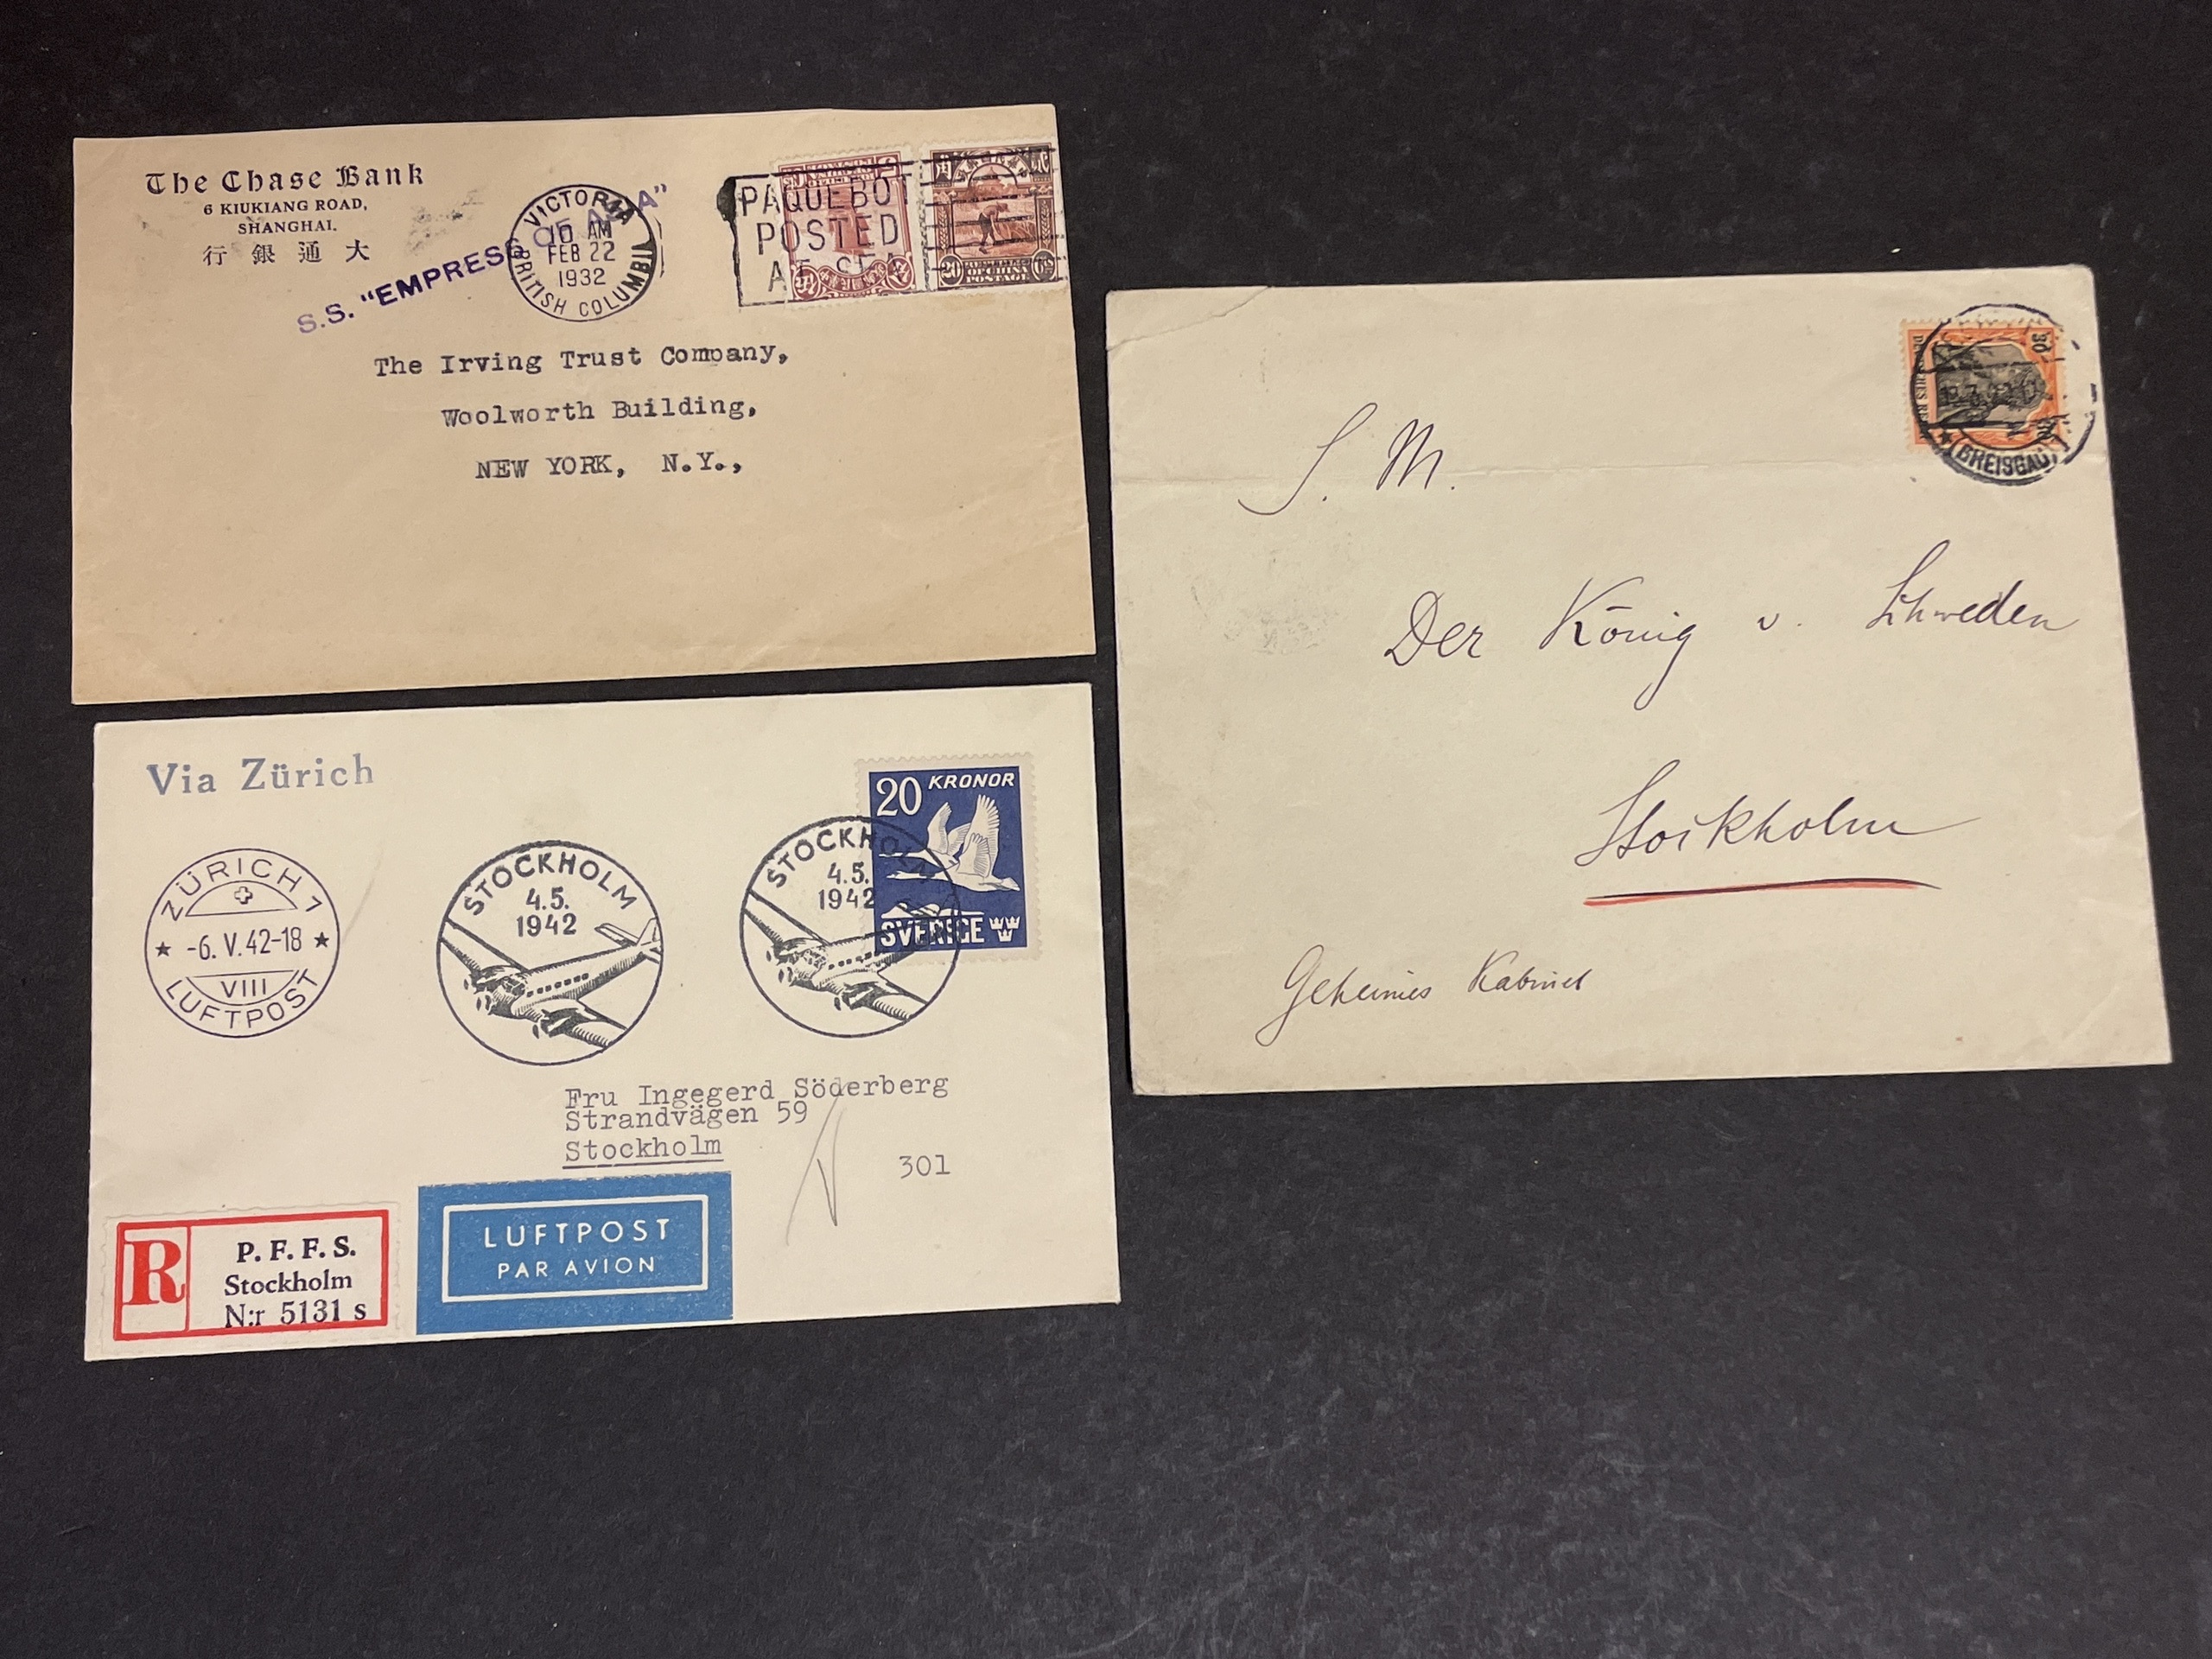 The Chase Bank
6 KIUKIANG ROAD,
SHANGHAI.
行 銀 通 大
S.S. "EMPRESS OF ASIA"
VICTORIA
10 AM
FEB 22
1932
BRITISH COLUMBIA
PAQUEBOT
POSTED
AT SEA
20
OF CHINA
POSTAGE
The Irving Trust Company,
Woolworth Building,
NEW YORK, N.Y.,
Via Zürich
ZÜRICH 1
-6. V. 42-18
VIII
LUFTPOST
STOCKHOLM
4.5.
1942
STOCKHOLM
4.5.
1942
20 KRONOR
SVERIGE
Fru Ingegerd Söderberg
Strandvägen 59
Stockholm
301
R
P. F. F. S.
Stockholm
N:r 5131 s
LUFTPOST
PAR AVION
30
DEUTSCHES REICH
(BREISGAU)
S. M.
Der König v. Schweden
Stockholm
Geheimes Kabinet